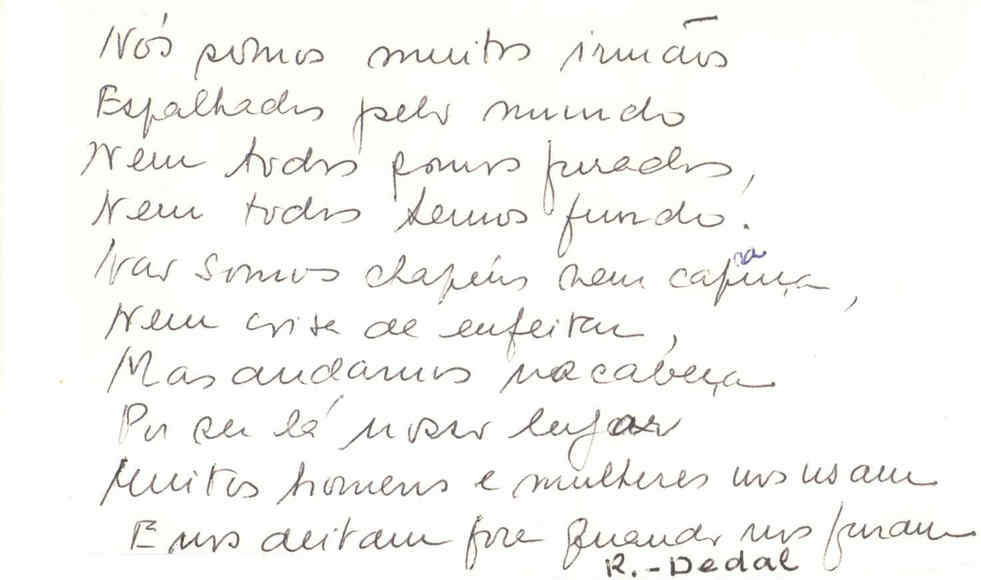 Nós somos muitos irmãos
Espalhados pelo mundo
Nem todos somos furados,
Nem todos temos fundo.
Não somos chapéus nem carapuça,
Nem coisa de enfeitar,
Mas andamos na cabeça
Por ser lá nosso lugar
Muitos homens e mulheres nos usam
E nos deitam fora quando nos furam
R.-Dedal